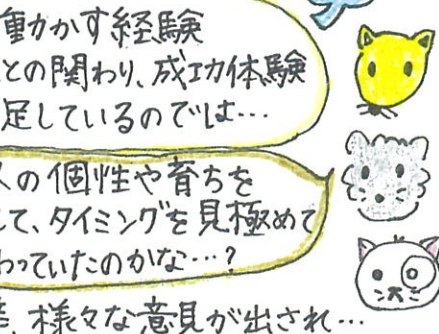 動かす経験
との関わり、成功体験
足しているのでは…
の個性や育ちを
て、タイミングを見極めて
わっていたのかな…?
様々な意見が出され…